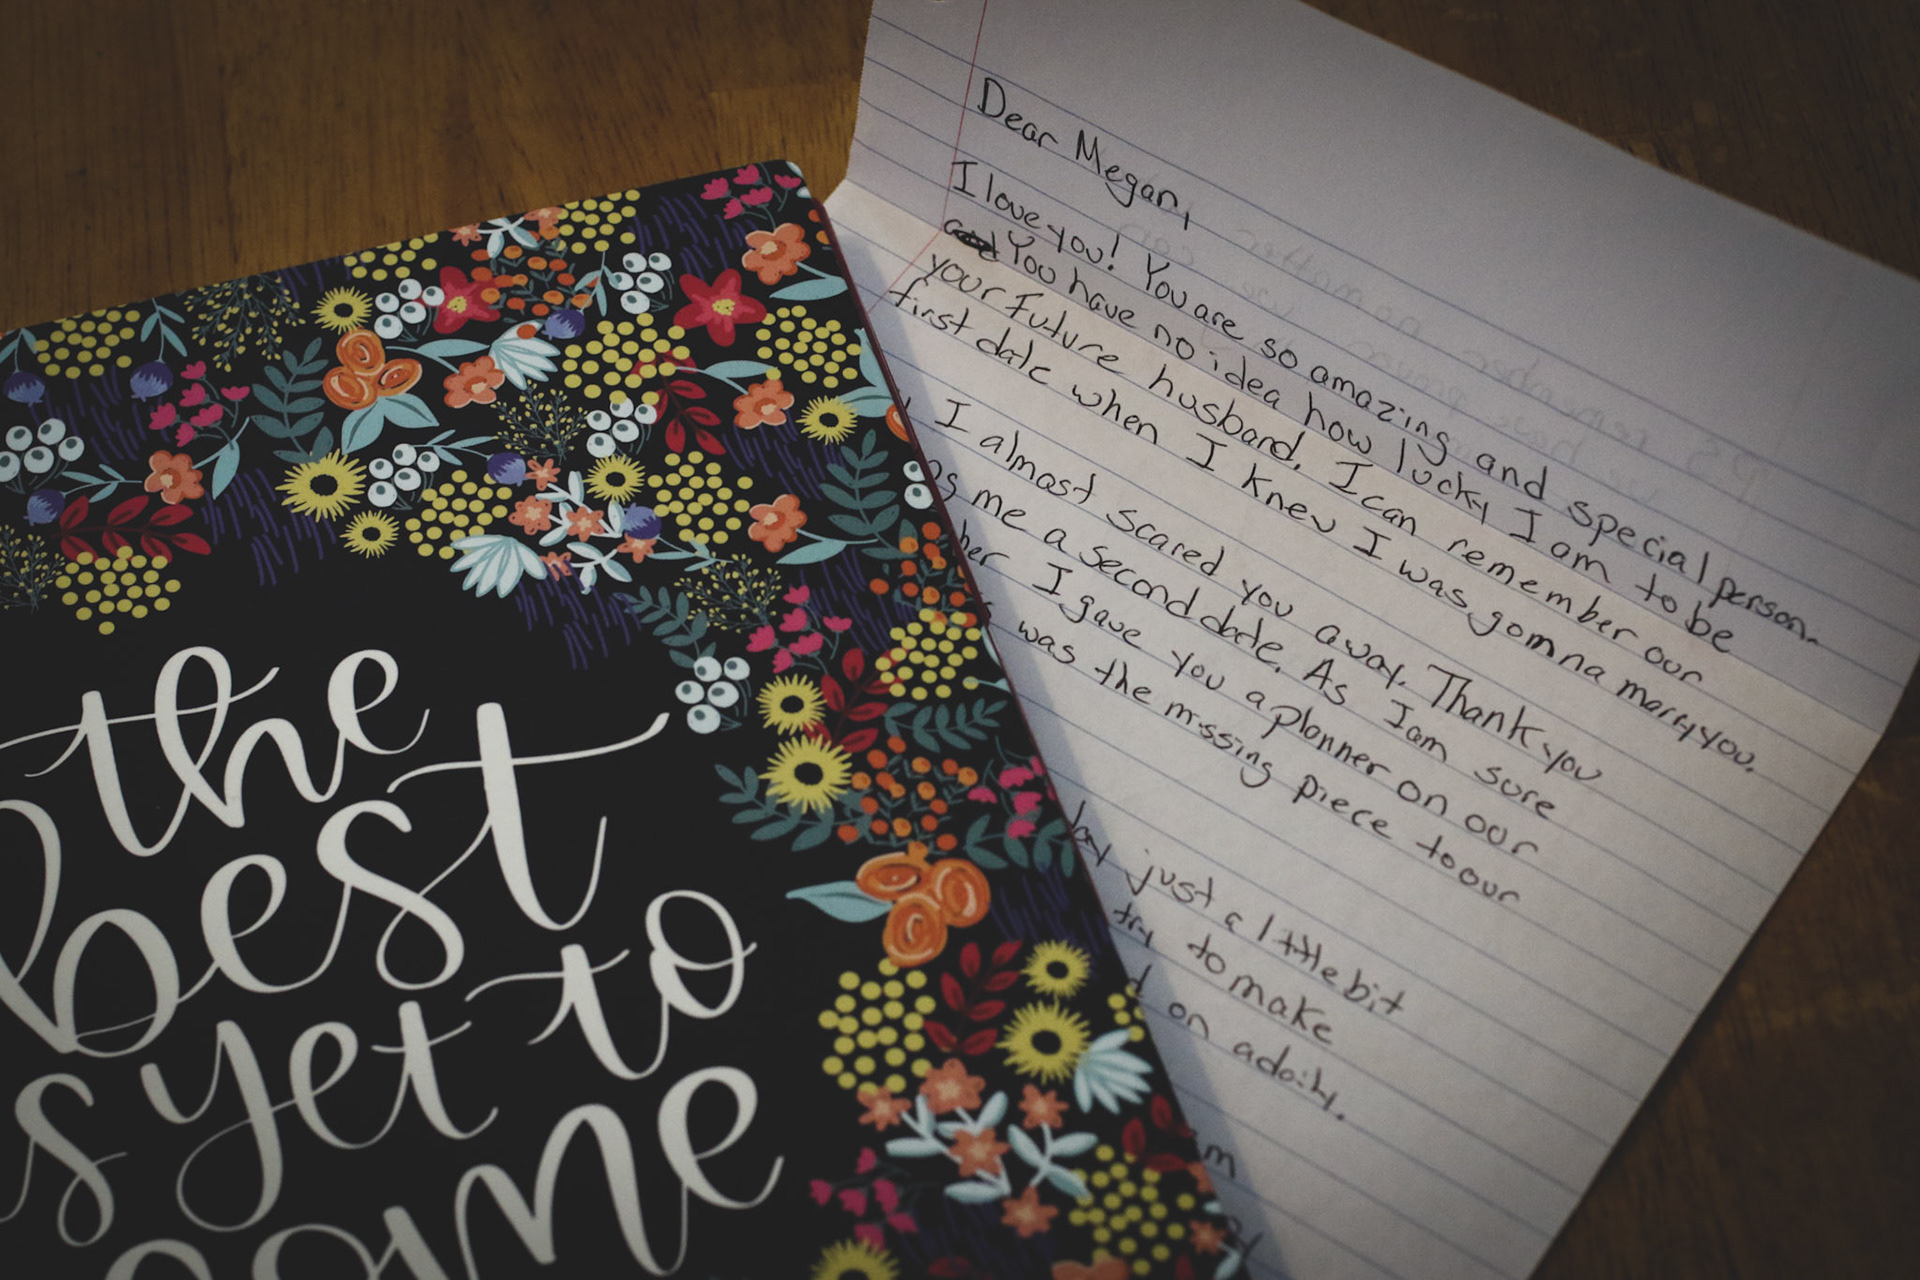 the
best
is yet to
come
Dear Megan,
I love you! You are so amazing and special person.
You have no idea how lucky I am to be
your future husband. I can remember our
first date when I knew I was gomna marry you.
I almost scared you away. Thank you
me a second date. As I am sure
I gave you a planner on our
was the missing piece to our
just a little bit
try to make
on a daily.